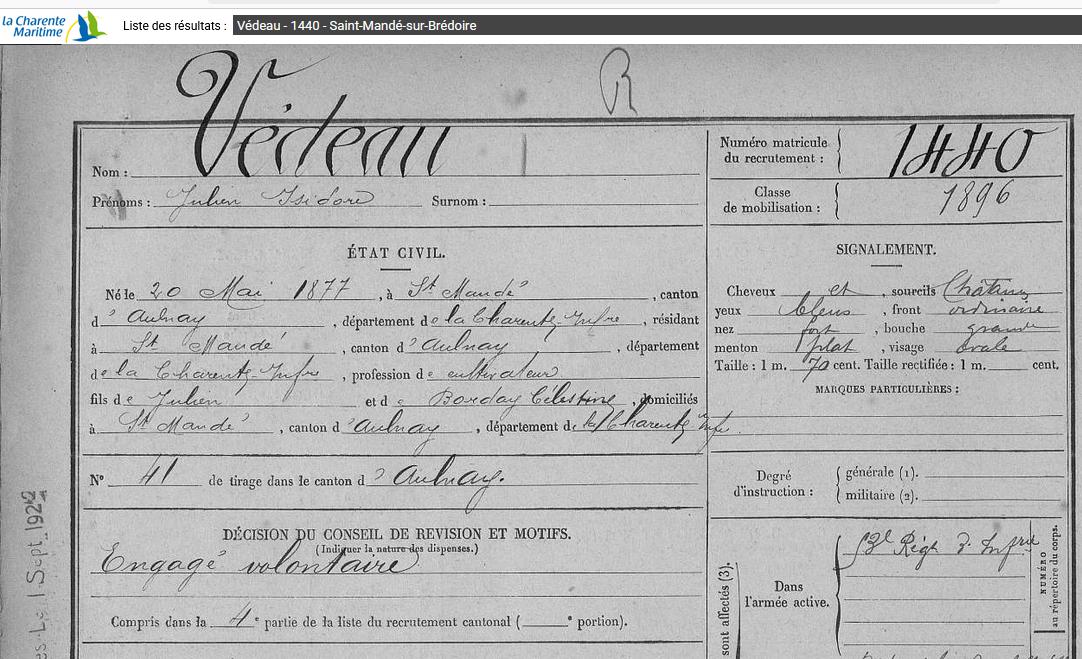 la Charente
Maritime
Liste des résultats : Védeau - 1440 - Saint-Mandé-sur-Brédoire
R
Nom : Védeau
Prénoms : Julien Isidore Surnom :
Numéro matricule du recrutement : 1440
Classe de mobilisation : 1896
ÉTAT CIVIL.
Né le 20 Mai 1877, à St Mandé, canton
d'Aulnay, département de la Charente-Infre, résidant
à St Mandé, canton d'Aulnay, département
de la Charente-Infre, profession de cultivateur
fils de Julien et de Borday Célestine, domiciliés
à St Mandé, canton d'Aulnay, département de la Charente Infre.
SIGNALEMENT.
Cheveux et, sourcils Châtains
yeux bleus, front ordinaire
nez fort, bouche grande
menton plat, visage ovale
Taille : 1 m. 70 cent. Taille rectifiée : 1 m. cent.
MARQUES PARTICULIÈRES :
N° 41 de tirage dans le canton d'Aulnay.
Degré d'instruction : générale (1).
militaire (2).
DÉCISION DU CONSEIL DE REVISION ET MOTIFS.
(Indiquer la nature des dispenses.)
Engagé volontaire
Compris dans la 4e partie de la liste du recrutement cantonal ( e portion).
Dans l'armée active. Régt d'Infrie
NUMÉRO
au répertoire du corps.
sont affectés (3).
1 Sept. 1922